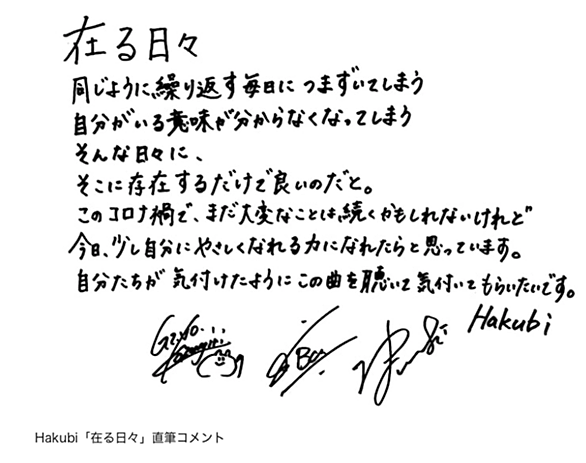 在る日々
同じように、繰り返す毎日に つまずいてしまう
自分がいる意味が分からなくなってしまう
そんな日々に、
そこに存在するだけで良いのだと。
このコロナ禍で、まだ大変なことは、続くかもしれないけれど
今日、少し自分にやさしくなれる力になれたらと思っています。
自分たちが 気付けたように この曲を聴いて 気付いて もらいたいです。
Hakubi
Hakubi「在る日々」直筆コメント